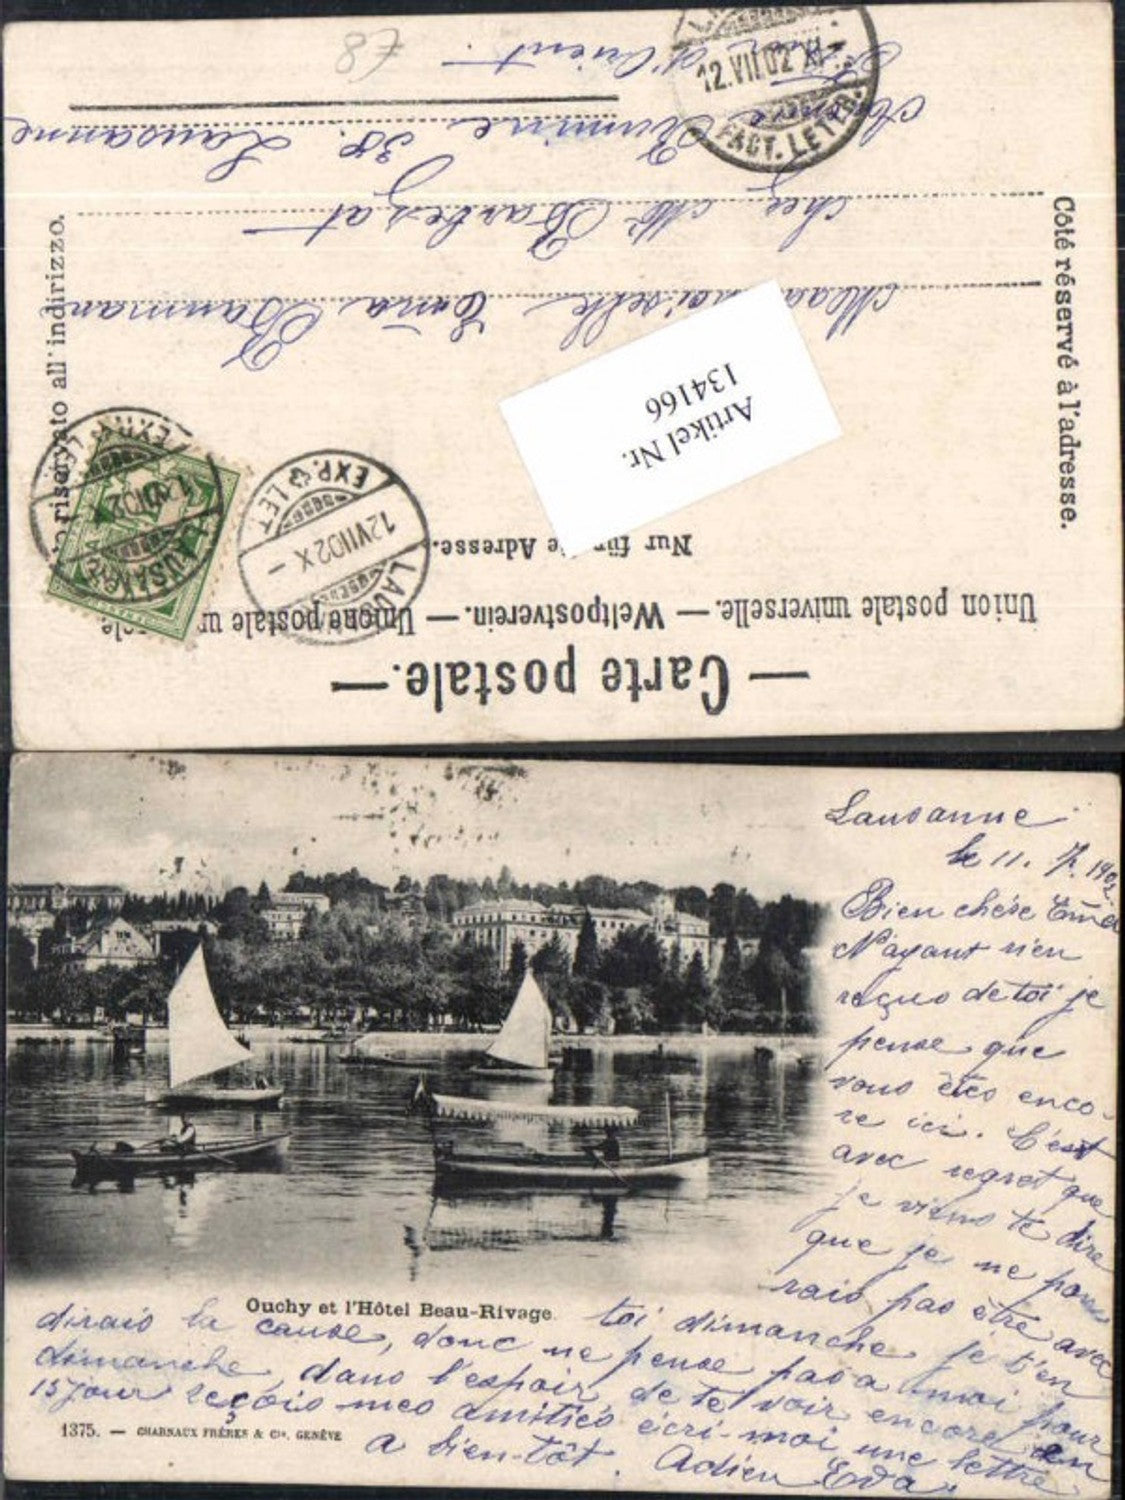 Carte postale.
Union postale universelle. — Weltpostverein. — Unione postale
Nur für die Adresse.
Côté réservé à l'adresse.
riservato all'indirizzo.
Artikel Nr.
134166
LAUSANNE
12.VII.02 X
EXP. LET
LAU
12.VII.02.X —
EXP. LET
Mademoiselle Emá Bauman
chez Mr Barbezat
Avenue Rumine 38. Lausanne
d'Orient.
12.VII.02 XI
FACT. LETTR.
£8
Lausanne
le 11. 7. 1902
Bien chère Emá
N'ayant rien
reçus de toi je
pense que
vous êtes enco-
re ici. C'est
avec regret que
je viens te dire
que je ne pour
rais pas être avec
toi dimanche je t'en
dirais la cause, donc ne pense pas a moi pour
dimanche, dans l'espoir de te voir encore en
15 jour reçois mes amitiés écri-moi une lettre
a bien-tôt. Adieu Eva.
Ouchy et l'Hôtel Beau-Rivage
1375. — CHARNAUX FRÈRES & Cie, GENÈVE